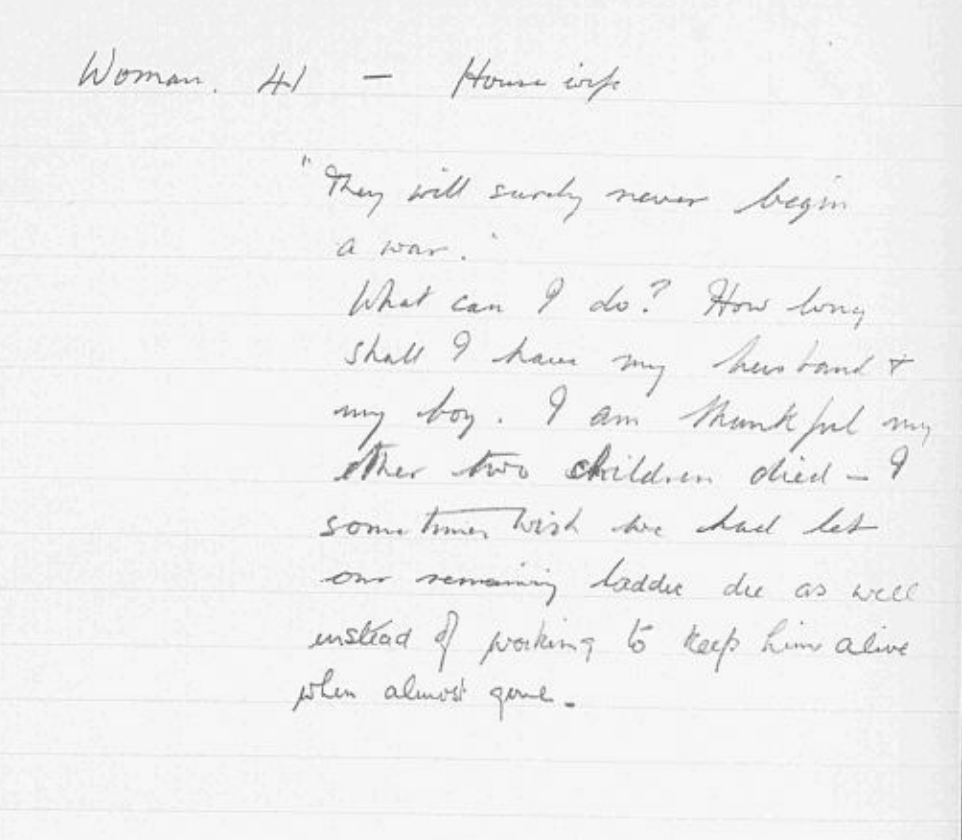 Woman. 41 — Housewife
"They will surely never begin
a war."
What can I do? How long
shall I have my husband &
my boy. I am thankful my
other two children died – I
sometimes wish we had let
our remaining laddie die as well
instead of working to keep him alive
when almost gone.